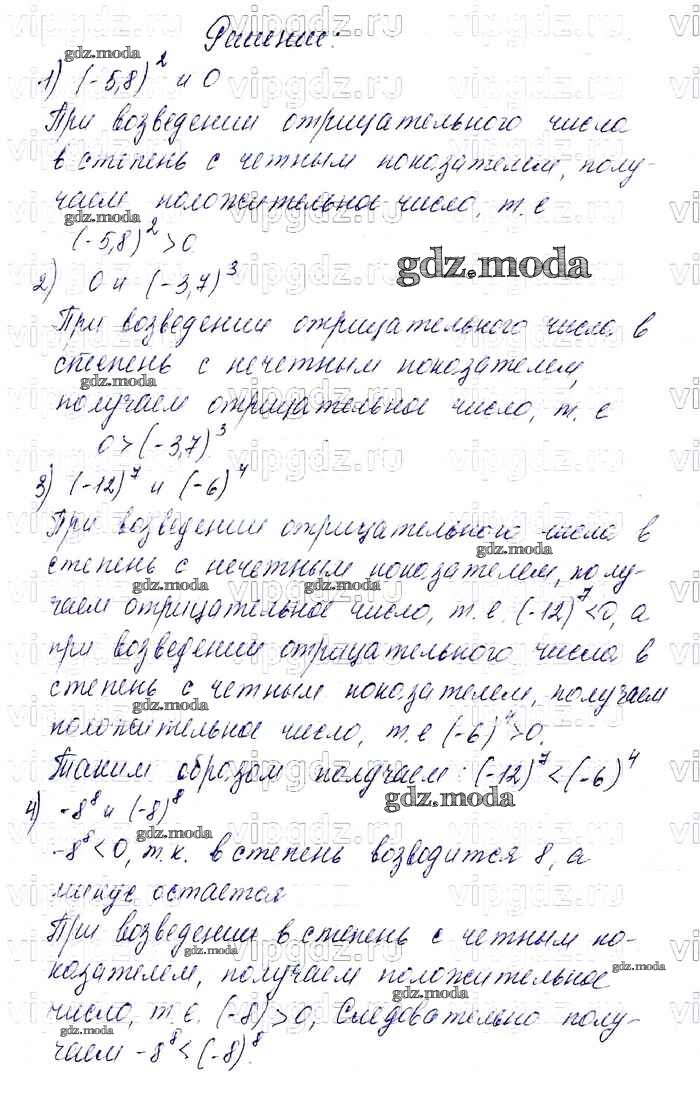 Решение:
1) (-5,8)² и 0
При возведении отрицательного числа
в степень с четным показателем, полу-
чаем положительное число, т. е
(-5,8)² > 0.
2) 0 и (-3,7)³
gdz.moda
При возведении отрицательного числа в
степень с нечетным показателем,
получаем отрицательное число, т. е
0 > (-3,7)³
3) (-12)⁷ и (-6)⁴
При возведении отрицательного числа в
степень с нечетным показателем, полу-
чаем отрицательное число, т. е. (-12)⁷<0, а
при возведении отрицательного числа в
степень с четным показателем, получаем
положительное число, т. е (-6)⁴>0.
Таким образом получаем: (-12)⁷ < (-6)⁴
4) -8⁸ и (-8)⁸
gdz.moda
-8⁸<0, т. к. в степень возводится 8, а
минус остается
При возведении в степень с четным по-
казателем, получаем положительное
число, т. е. (-8)⁸>0, Следовательно полу-
чаем -8⁸ < (-8)⁸.